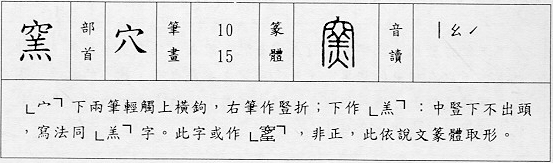 窯 部首 穴 筆畫 10 15 篆體 窯 音讀 ㄧㄠˊ
「宀」下兩筆輕觸上橫鉤，右筆作豎折；下作「羔」：中豎下不出頭
，寫法同「羔」字。此字或作「窰」，非正，此依說文篆體取形。